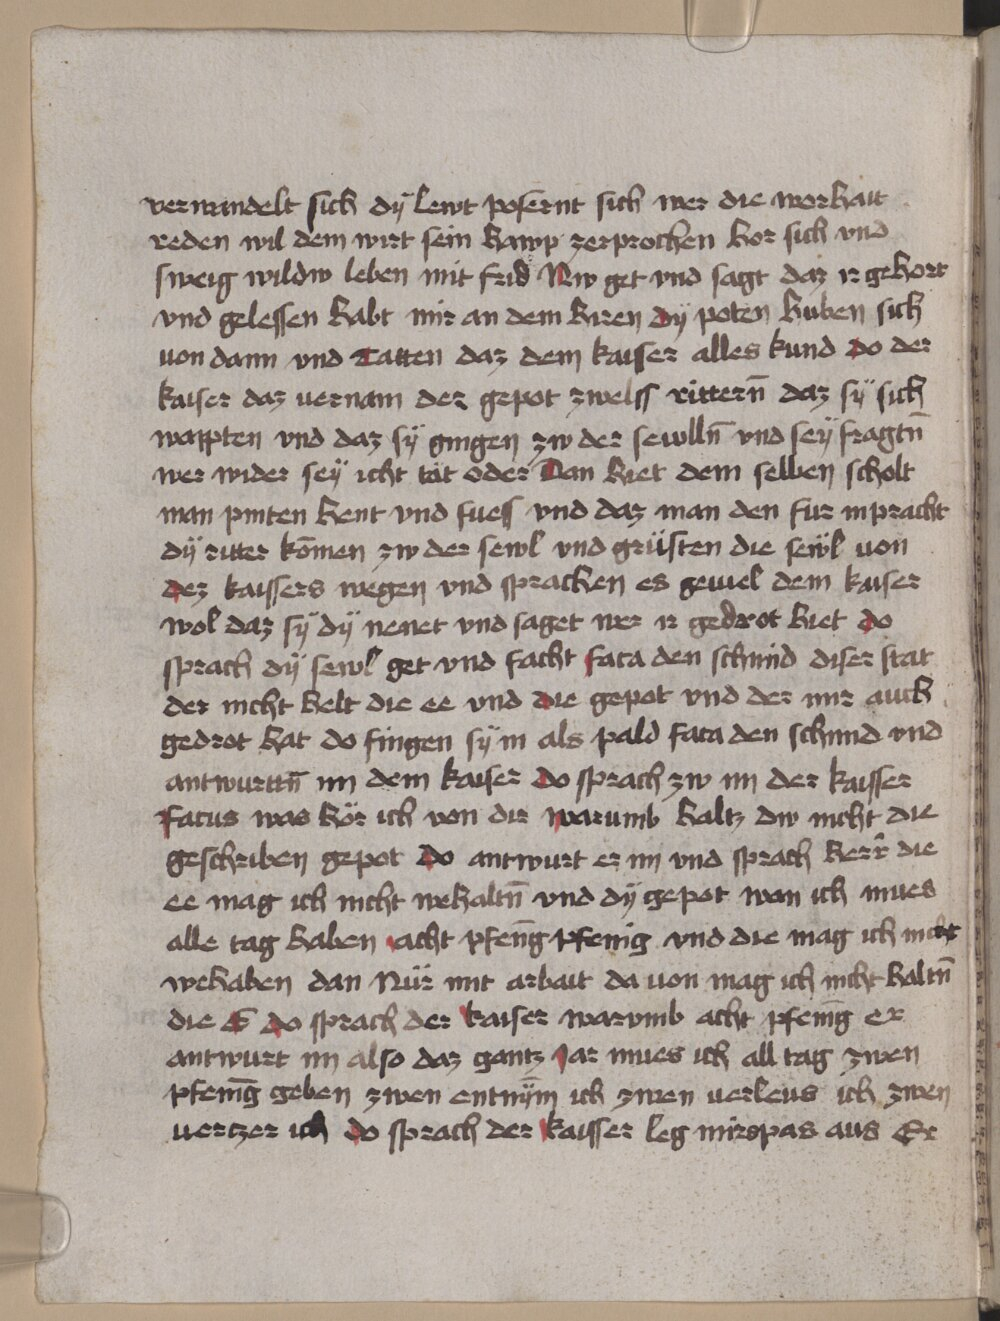 verwandelt sich dÿ lewt posernt sich wer die worhait
reden wil dem wirt sein hawp zerprochen hor sich vnd
sweig wildw leben mit frid Nw get vnd sagt daz ir gehort
vnd gelessen habt mir an dem hiren dÿ poten huben sich
von dann vnd Tatten daz dem kaiser alles kund do der
kaiser daz uernam der gepot zwelff rittern̄ daz sÿ sich
wappten vnd daz sÿ gingen zw der sewlln̄ vnd seÿ fragtn̄
wer wider seÿ icht tät oder Tan hiet dem selben scholt
man pinten hent vnd fuess vnd daz man den fur in pracht
dÿ ritter kōmen zw der sewl vnd grüsten die sewl von
dez kaissers wegen vnd sprachen es geuiel dem kaiser
wol daz sÿ dÿ nenet vnd saget wer ir gedrot hiet do
sprach dÿ sewl get vnd facht faca den schmid diser stat
der nicht helt die ee vnd die gepot vnd der mir auch
gedrot hat do fingen sÿ in als pald faca den schmid vnd
antwurttn̄ in dem kaiser do sprach zw im der kaisser
facus was hör ich von dir warumb haltz dw nicht die
geschriben gepot do antwurt er im vnd sprach herr̄ die
ee mag ich nicht wehaltn̄ vnd dÿ gepot wan ich mues
alle tag haben acht pfen̄g pfenig vnd die mag ich nicht
wehaben dan Nür mit arbait da von mag ich nicht haltn̄
die E do sprach der kaiser warvmb acht pfenīg er
antwurt im also daz gantz Jar mues ich all tag zwen
pfenīg geben zwen entnÿm ich zwen uerleus ich zwen
uertzer ich do sprach der kaisser leg mirs pas aus Er